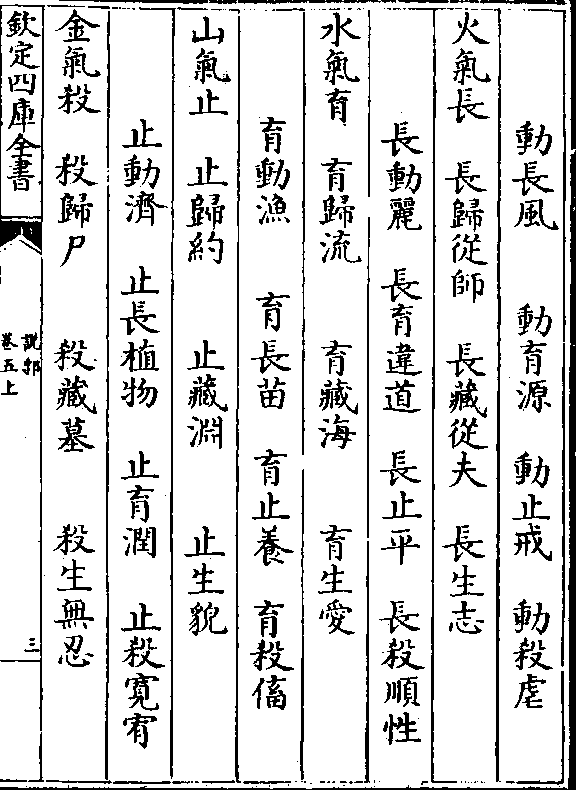 動長風 動育源 動止戒 動殺虐
火氣長 長歸從師 長藏從夫 長生志
長動麗 長育違道 長止平 長殺順性
水氣育 育歸流 育藏海 育生愛
育動漁 育長苗 育止養 育殺畜
山氣止 止歸約 止藏淵 止生貌
止動濟 止長植物 止育潤 止殺寛宥
金氣殺 殺歸尸 殺藏墓 殺生無忍
欽定四庫全書
說郛
卷五上
三